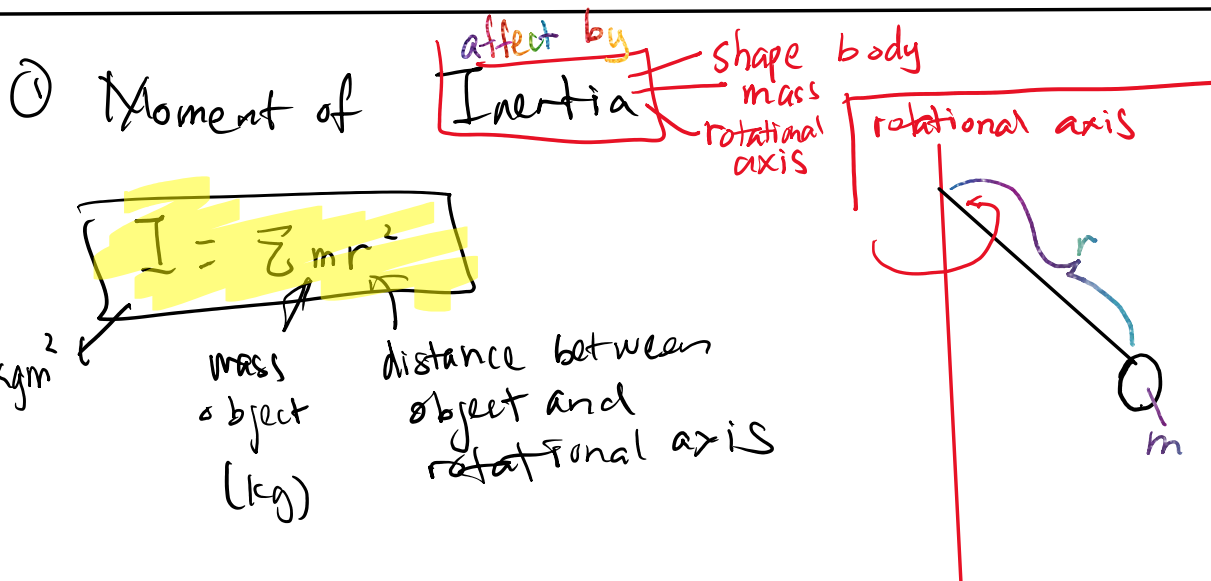 affect by
① Moment of Inertia
shape body
mass
rotational
axis
rotational axis
I = Σmr²
r
kgm²
mass
object
(kg)
distance between
object and
rotational axis
m